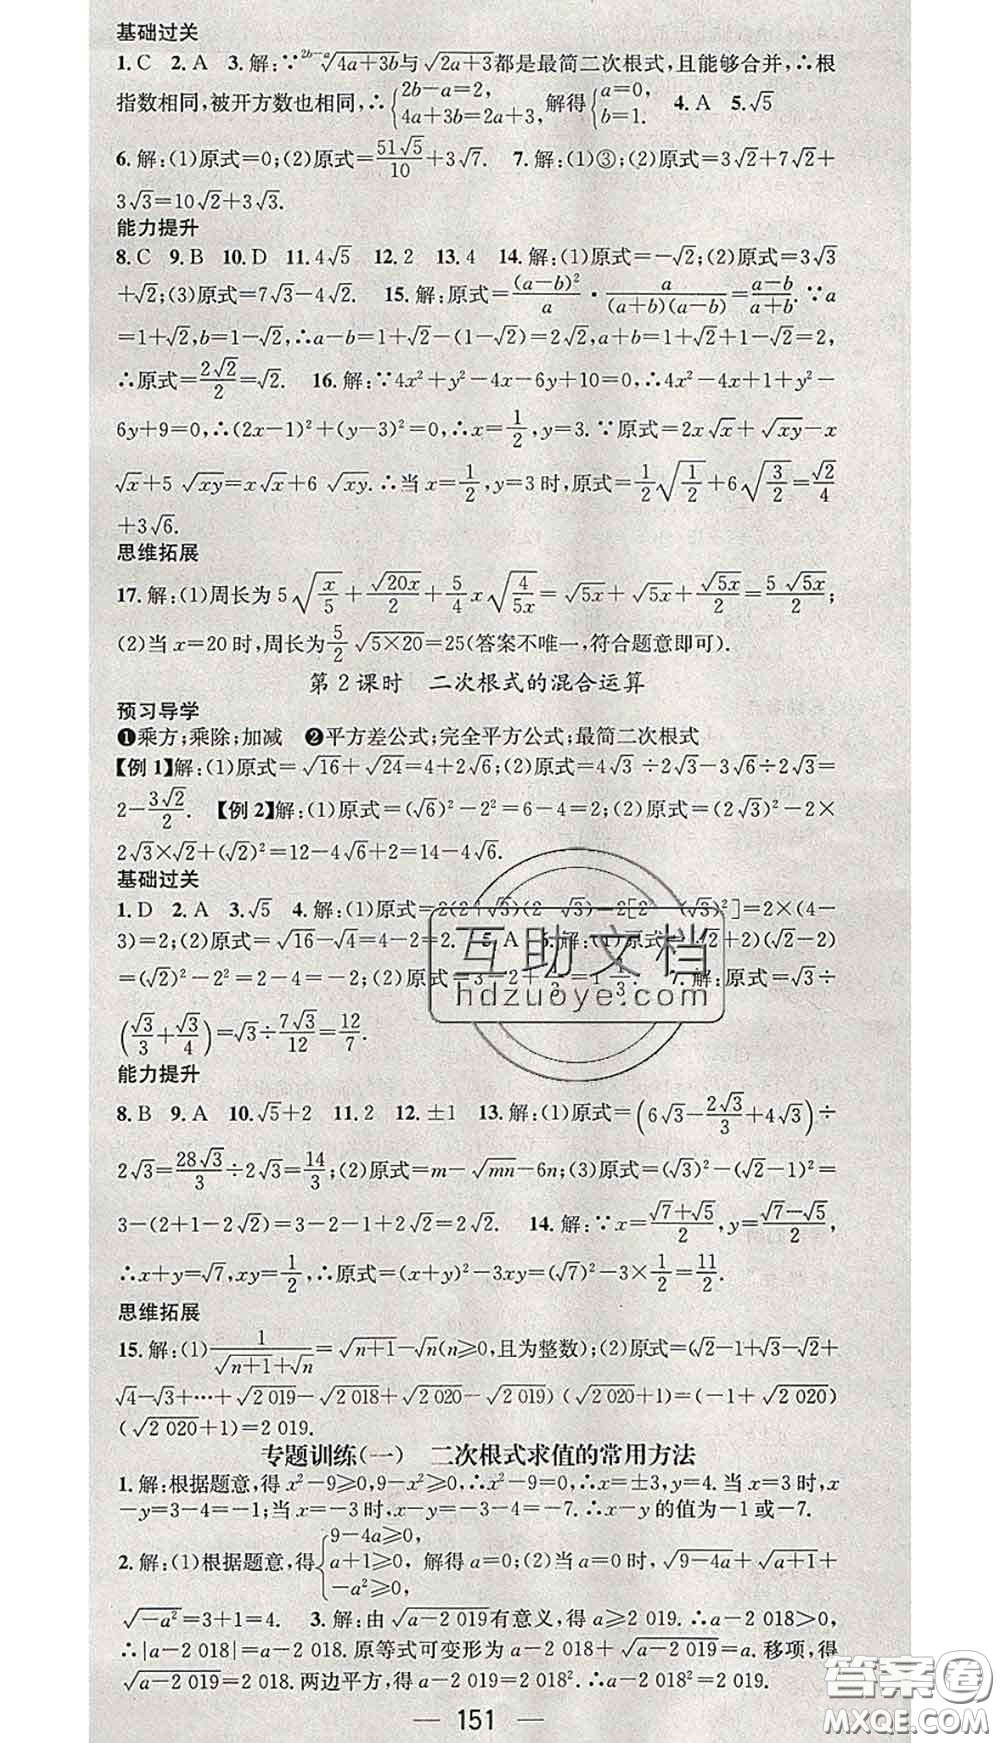 基础过关
1. C 2. A 3. 解:∵\sqrt[2b-a]{4a+3b}与√(2a+3)都是最简二次根式,且能够合并,∴根
指数相同,被开方数也相同,∴{2b-a=2, 4a+3b=2a+3, 解得{a=0, b=1. 4. A 5. √5
6. 解:(1)原式=0;(2)原式=51√5/10+3√7. 7. 解:(1)③;(2)原式=3√2+7√2+
3√3=10√2+3√3.
能力提升
8. C 9. B 10. D 11. 4√5 12. 2 13. 4 14. 解:(1)原式=-√2;(2)原式=3√3
+√2;(3)原式=7√3-4√2. 15. 解:原式=(a-b)²/a·a/((a+b)(a-b))=(a-b)/(a+b). ∵a
=1+√2,b=1-√2,∴a-b=1+√2-(1-√2)=2√2,a+b=1+√2+1-√2=2,
∴原式=2√2/2=√2. 16. 解:∵4x²+y²-4x-6y+10=0,∴4x²-4x+1+y²-
6y+9=0,∴(2x-1)²+(y-3)²=0,∴x=1/2,y=3. ∵原式=2x√x+√(xy)-x
√x+5√(xy)=x√x+6√(xy). ∴当x=1/2,y=3时,原式=1/2√(1/2)+6√(3/2)=√2/4
+3√6.
思维拓展
17. 解:(1)周长为5√(x/5)+√(20x)/2+5/4x√(4/(5x))=√(5x)+√(5x)+√(5x)/2=5√(5x)/2;
(2)当x=20时,周长为5/2√(5×20)=25(答案不唯一,符合题意即可).
第2课时 二次根式的混合运算
预习导学
❶乘方;乘除;加减 ❷平方差公式;完全平方公式;最简二次根式
【例1】解:(1)原式=√16+√24=4+2√6;(2)原式=4√3÷2√3-3√6÷2√3=
2-3√2/2. 【例2】解:(1)原式=(√6)²-2²=6-4=2;(2)原式=(2√3)²-2×
2√3×√2+(√2)²=12-4√6+2=14-4√6.
基础过关
1. D 2. A 3. √5 4. 解:(1)原式=2(2+√3)(2-√3)=2[2²-(√3)²]=2×(4-
3)=2;(2)原式=√16-√4=4-2=2. 5. A 6. 解:(1)原式=(√2+2)(√2-2)
=(√2)²-2²=2-4=-2;(2)原式=3-2+√3/3=1+√3/3. 7. 解:原式=√3÷
(√3/3+√3/4)=√3÷7√3/12=12/7.
能力提升
8. B 9. A 10. √5+2 11. 2 12. ±1 13. 解:(1)原式=(6√3-2√3/3+4√3)÷
2√3=28√3/3÷2√3=14/3;(2)原式=m-√(mn)-6n;(3)原式=(√3)²-(√2-1)²=
3-(2+1-2√2)=3-2-1+2√2=2√2. 14. 解:∵x=(√7+√5)/2,y=(√7-√5)/2,
∴x+y=√7,xy=1/2,∴原式=(x+y)²-3xy=(√7)²-3×1/2=11/2.
思维拓展
15. 解:(1)1/(√(n+1)+√n)=√(n+1)-√n(n≥0,且为整数);(2)原式=(√2-1+√3-√2+
√4-√3+…+√2 019-√2 018+√2 020-√2 019)(√2 020+1)=(-1+√2 020)
(√2 020+1)=2 019.
专题训练(一) 二次根式求值的常用方法
1. 解:根据题意,得x²-9≥0,9-x²≥0,∴x²-9=0,∴x=±3,y=4. 当x=3时,x
-y=3-4=-1;当x=-3时,x-y=-3-4=-7. ∴x-y的值为-1或-7.
2. 解:(1)根据题意,得{9-4a≥0, a+1≥0, -a²≥0, 解得a=0;(2)当a=0时,√(9-4a)+√(a+1)+
√(-a²)=3+1=4. 3. 解:由√(a-2 019)有意义,得a≥2 019. ∴a-2 018>0,
∴|a-2 018|=a-2 018. 原等式可变形为a-2 018+√(a-2 019)=a. 移项,得
√(a-2 019)=2 018. 两边平方,得a-2 019=2 018². ∴a-2 018²=2 019.
— 151 —
互助文档
hdzuoye.com
答案圈
MXQE.COM